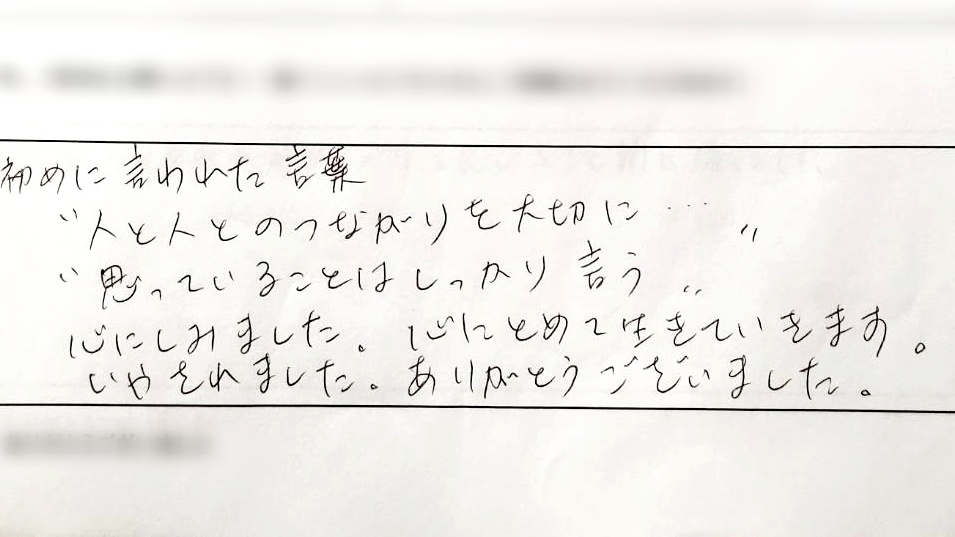 初めに言われた言葉
"人と人とのつながりを大切に… "
"思っていることはしっかり言う"
心にしみました。心にとめて生きていきます。
いやされました。ありがとうございました。